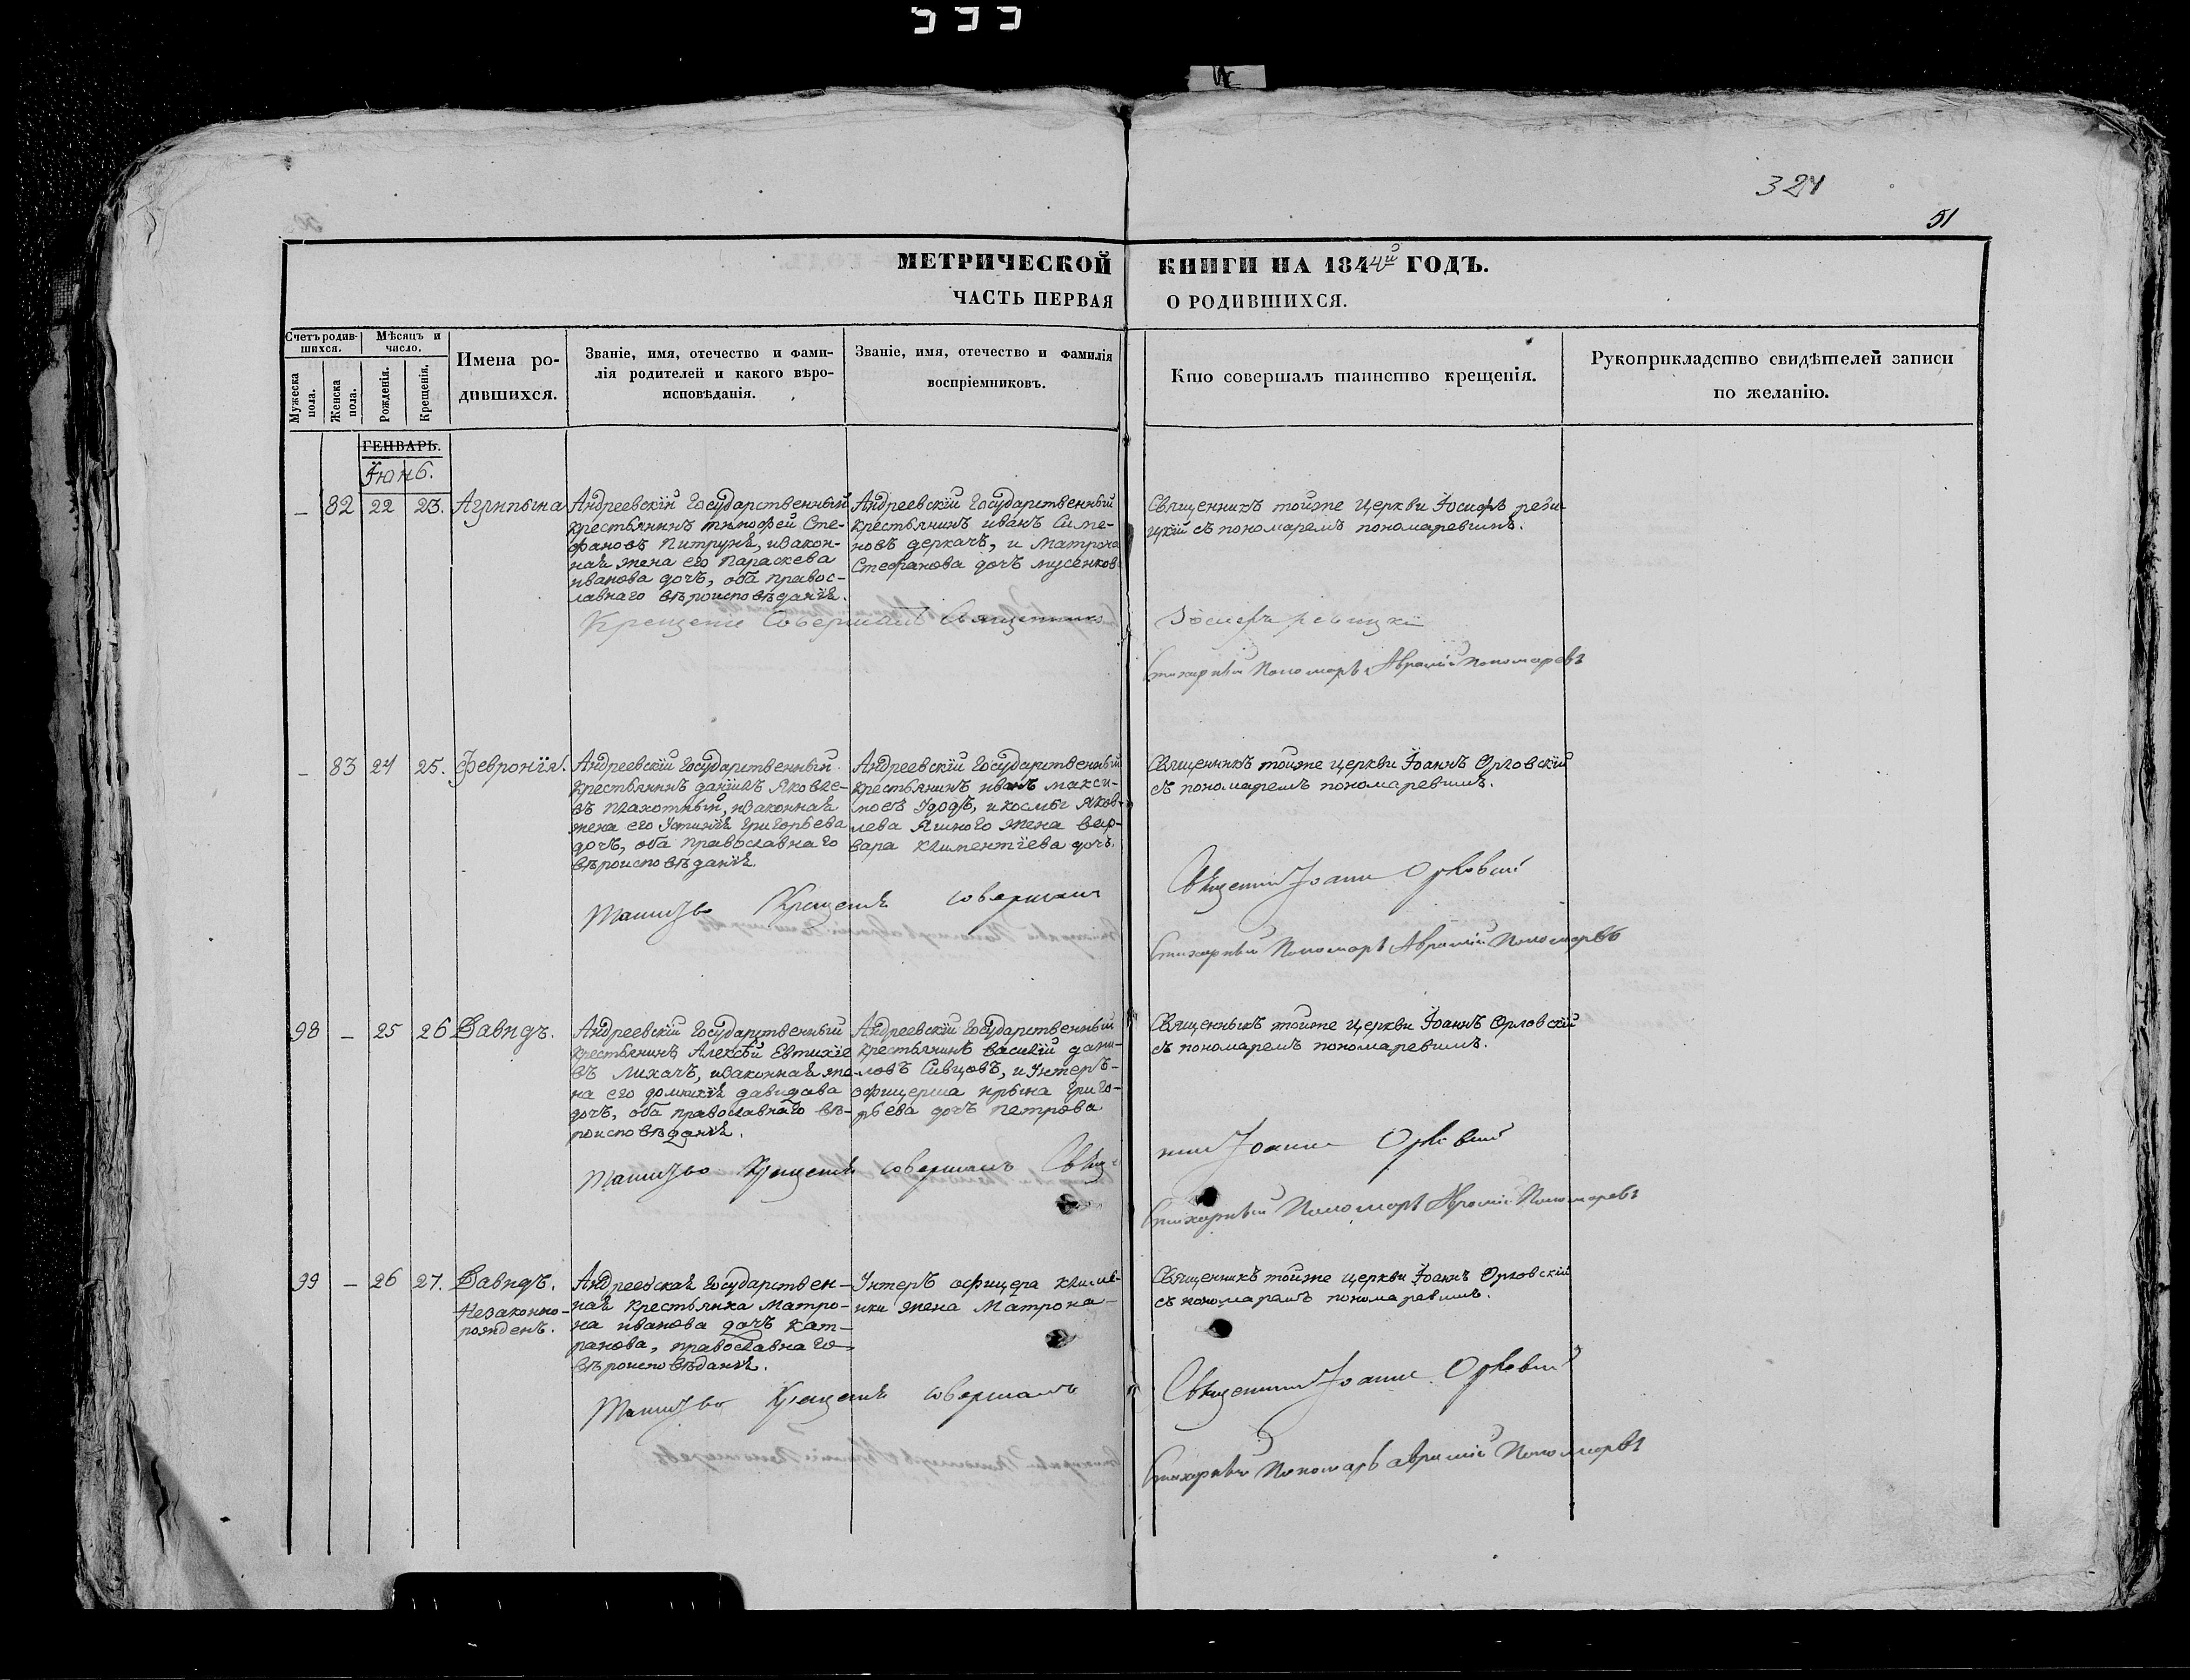 324
51
МЕТРИЧЕСКОЙ КНИГИ НА 1844й ГОДЪ.
ЧАСТЬ ПЕРВАЯ О РОДИВШИХСЯ.
Счетъ родив-
шихся.
Мужеска
пола.
Женска
пола.
Мѣсяцъ и
число.
Рожденія.
Крещенія.
Имена ро-
дившихся.
Званіе, имя, отечество и фами-
лія родителей и какого вѣро-
исповѣданія.
Званіе, имя, отечество и фамилія
воспріемниковъ.
Кто совершалъ таинство крещенія.
Рукоприкладство свидѣтелей записи
по желанію.
ГЕНВАРЬ.
Іюнь.
– 82 22 23. Агрипына
Андреевскій Государственный
крестьянинъ тимофей Сте-
фановъ Питрунѣ, изакон-
наѣ жена его Параскева
иванова дочъ, оба правос-
лавнаго вѣроисповѣданіѣ.
Андреевскій Государственный
крестьянинъ иванъ Симе-
новъ деркачъ, и Матрона
Стефанова дочъ мусенков
Священникъ тойже церкви Іосифъ реви-
цкій съ пономаремъ пономаревимъ.
Крещеніе Совершалъ Священникъ Іосифъ ревицкій
Стихарный Пономарь Аврамій Пономаревъ
– 83 24 25. Февронія.
Андреевскій Государственный
крестьянинъ даніилъ Яковле-
въ плахотный, изаконнаѣ
жена его Устиніѣ Григорьева
дочъ, оба православнаго
вѣроисповѣданіѣ.
Андреевскій Государственный
крестьянинъ иванъ макси-
мовъ Удодъ, и космы Яков-
лева Яшного жена вар-
вара климентіева дочъ.
Священникъ тойже церкви Іоаннъ Орловскій
съ пономаремъ пономаревимъ.
Таинство Крещеніѣ совершалъ Священникъ Іоаннъ Орловскій
Стихарный Пономарь Аврамій Пономаревъ
98 – 25 26 Давидъ.
Андреевскій Государственный
крестьянинъ Алексѣй Евтихіе
въ Лихачъ, изаконнаѣ же-
на его домникіѣ давидова
дочъ, оба православнаго вѣ-
роисповѣданіѣ.
Андреевскій Государственный
крестьянинъ василій дани-
ловъ Сивцовъ, и Унтеръ-
офицерша ирына Григо-
рьева дочъ петрова
Священникъ тойже церкви Іоаннъ Орловскій
съ пономаремъ пономаревимъ.
Таинство Крещеніѣ совершалъ Священникъ Іоаннъ Орловскій
Стихарный Пономарь Аврамій Пономаревъ
99 – 26 27. Давидъ.
Незаконно-
рожденъ.
Андреевскаѣ Государствен-
наѣ крестьянка Матро-
на иванова дочъ кат-
ранова, православнаго
вѣроисповѣданіѣ.
Унтеръ офицера
жена Матрона
Священникъ тойже церкви Іоаннъ Орловскій
съ пономаремъ пономаревимъ.
Таинство Крещеніѣ совершалъ Священникъ Іоаннъ Орловскій
Стихарный Пономарь аврамій Пономаревъ